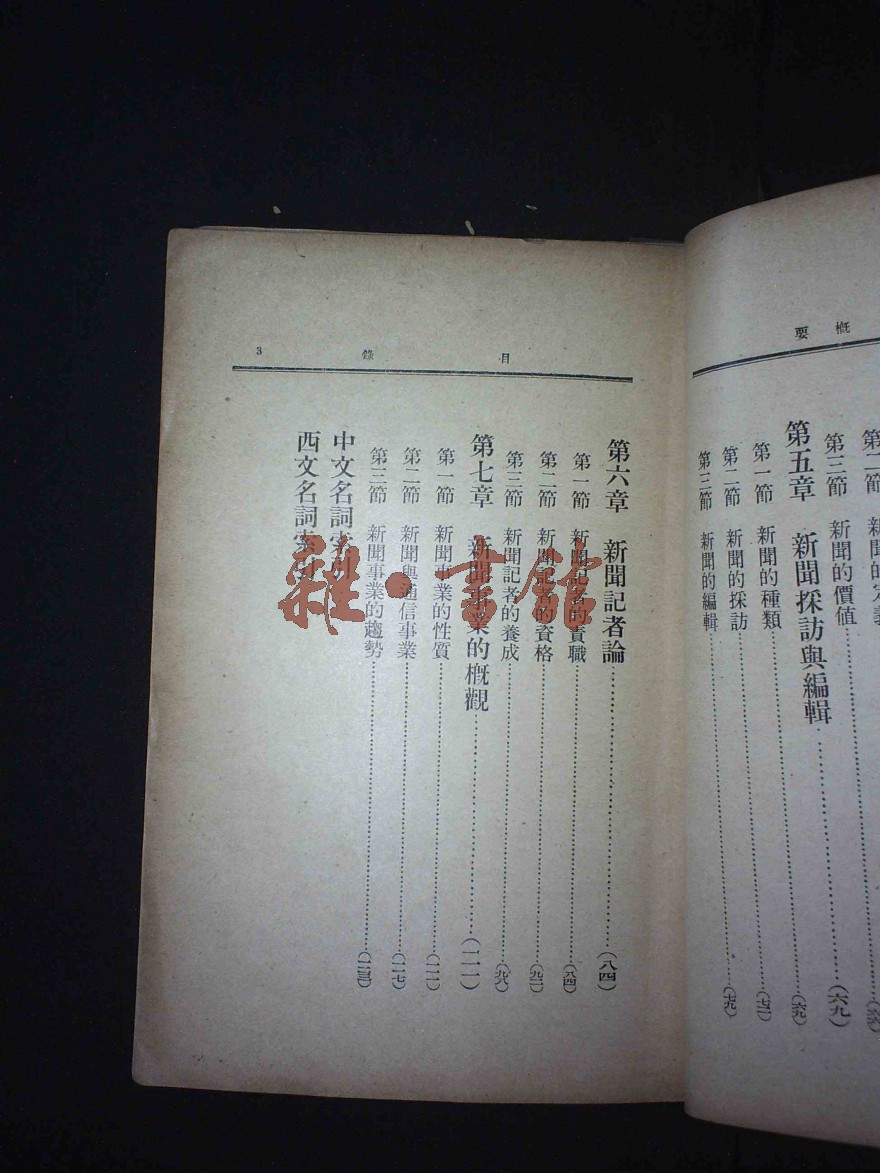 概要
第三節 新聞的價值
第五章 新聞採訪與編輯(六九)
第一節 新聞的種類(六九)
第二節 新聞的採訪(七二)
第三節 新聞的編輯(七九)
目錄 3
第六章 新聞記者論(八四)
第一節 新聞記者的責職(八四)
第二節 新聞記者的資格(九二)
第三節 新聞記者的養成(九八)
第七章 新聞事業的概觀(一一一)
第一節 新聞事業的性質(一一一)
第二節 新聞與通信事業(一一七)
第三節 新聞事業的趨勢(一二三)
中文名詞索引
西文名詞索引
雜·書館